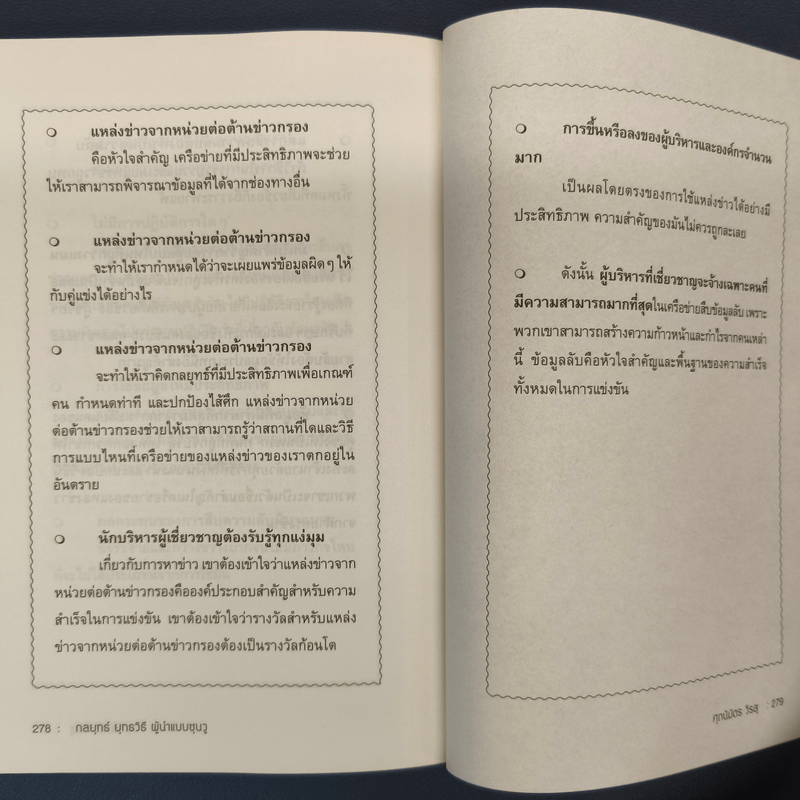 ❍ แหล่งข่าวจากหน่วยต่อต้านข่าวกรอง
คือหัวใจสำคัญ เครือข่ายที่มีประสิทธิภาพจะช่วย
ให้เราสามารถพิจารณาข้อมูลที่ได้จากช่องทางอื่น
❍ แหล่งข่าวจากหน่วยต่อต้านข่าวกรอง
จะทำให้เรากำหนดได้ว่าจะเผยแพร่ข้อมูลผิดๆ ให้
กับคู่แข่งได้อย่างไร
❍ แหล่งข่าวจากหน่วยต่อต้านข่าวกรอง
จะทำให้เราคิดกลยุทธ์ที่มีประสิทธิภาพเพื่อเกณฑ์
คน กำหนดท่าที และปกป้องไส้ศึก แหล่งข่าวจากหน่วย
ต่อต้านข่าวกรองช่วยให้เราสามารถรู้ว่าสถานที่ใดและวิธี
การแบบไหนที่เครือข่ายของแหล่งข่าวของเราตกอยู่ใน
อันตราย
❍ นักบริหารผู้เชี่ยวชาญต้องรับรู้ทุกแง่มุม
เกี่ยวกับการหาข่าว เขาต้องเข้าใจว่าแหล่งข่าวจาก
หน่วยต่อต้านข่าวกรองคือองค์ประกอบสำคัญสำหรับความ
สำเร็จในการแข่งขัน เขาต้องเข้าใจว่ารางวัลสำหรับแหล่ง
ข่าวจากหน่วยต่อต้านข่าวกรองต้องเป็นรางวัลก้อนโต
278 : กลยุทธ์ ยุทธวิธี ผู้นำแบบซุนวู
❍ การขึ้นหรือลงของผู้บริหารและองค์กรจำนวน
มาก
เป็นผลโดยตรงของการใช้แหล่งข่าวได้อย่างมี
ประสิทธิภาพ ความสำคัญของมันไม่ควรถูกละเลย
❍ ดังนั้น ผู้บริหารที่เชี่ยวชาญจะจ้างเฉพาะคนที่
มีความสามารถมากที่สุดในเครือข่ายสืบข้อมูลลับ เพราะ
พวกเขาสามารถสร้างความก้าวหน้าและกำไรจากคนเหล่า
นี้ ข้อมูลลับคือหัวใจสำคัญและพื้นฐานของความสำเร็จ
ทั้งหมดในการแข่งขัน
ศุภนิมิตร วีรสุ : 279